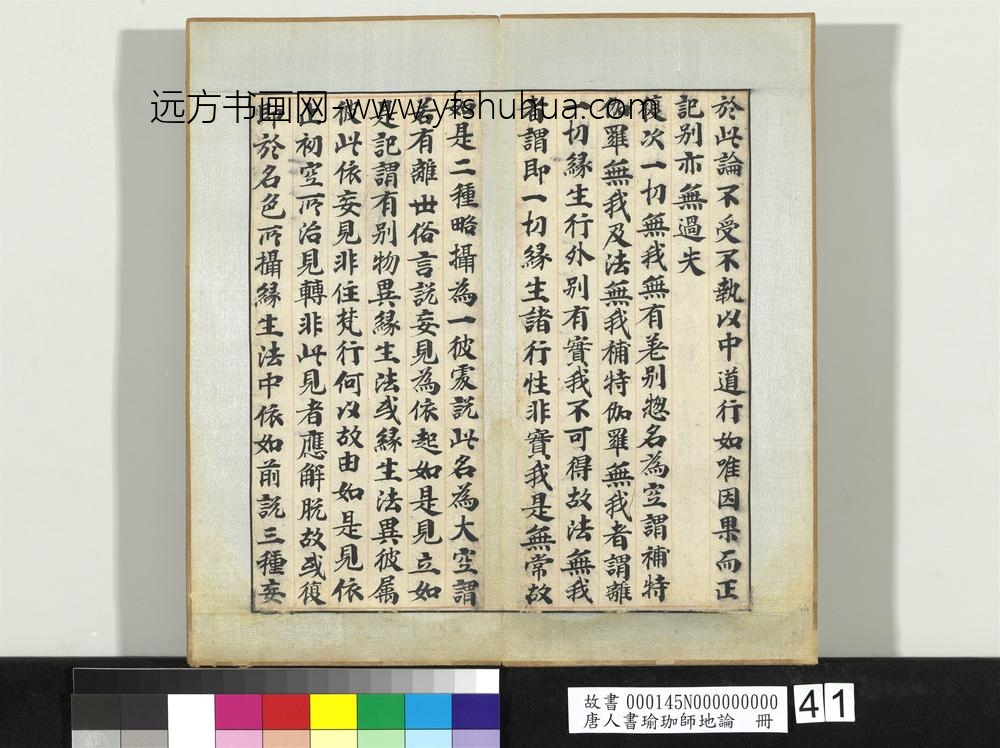 远方书画网-www.yfshuhua.com
於此論不受不執以中道行如唯因果而正
記別亦無過失
復次一切無我無有差別惣名為空謂補特
伽羅無我及法無我補特伽羅無我者謂離
一切緣生行外別有實我不可得故法無我
者謂即一切緣生諸行性非實我是無常故
如是二種略攝為一彼處說此名為大空謂
若有離世俗言說妄見為依起如是見立如
是記謂有別物異緣生法或緣生法異彼属
彼此依妄見非住梵行何以故由如是見依
止初空所治見轉非此見者應解脫故或復
即於名色所攝緣生法中依如前說三種妄
故書 000145N000000000
唐人書瑜珈師地論 冊
41